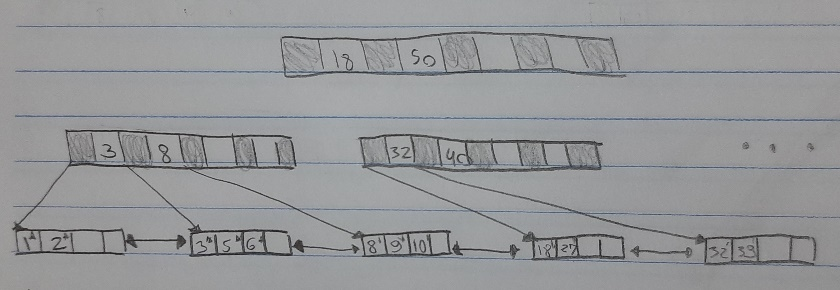 18 50
3 8 32 40
1* 2* 3* 5* 6* 8* 9* 10* 18* 27* 32* 39